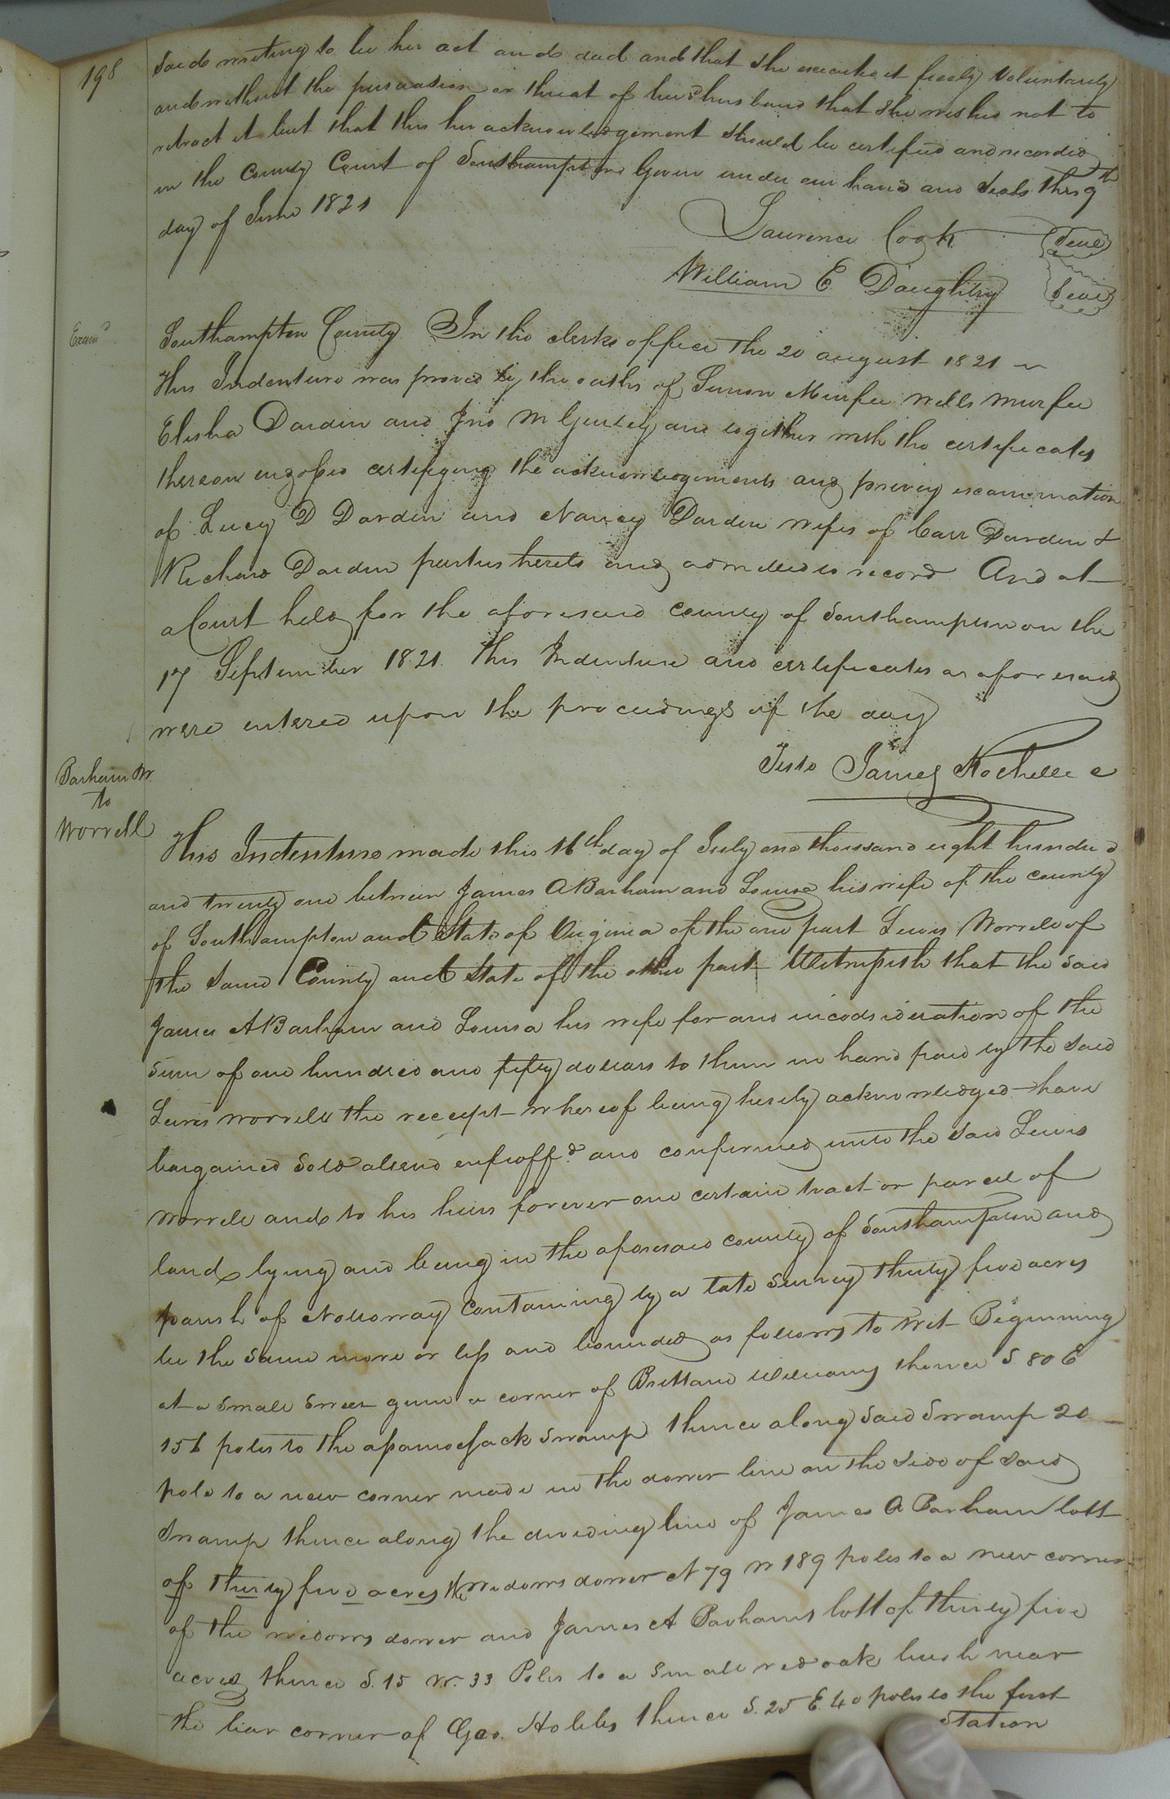 198
said writing to be her act and deed and that she executed it freely Voluntarily
and without the persuasion or threat of her husband that she wishes not to
retract it but that this her acknowledgement should be certified and recorded
in the County Court of Southampton Given under our hands and seals this 9th
day of June 1821
Laurence Cook Seal
William E Daughtry Seal
Exam'd
Southampton County In the clerks office the 20 august 1821
This Indenture was proved by the oaths of Simon Murfee Wells Murfee
Elisha Darden and Jno M Gurley and together with the certificates
thereon endorsed certifying the acknowledgements and privy examination
of Lucy D Darden and Nancy Darden wifes of Carr Darden &
Richard Darden parties hereto and admitted to record And at
a Court held for the aforesaid county of Southampton on the
17 September 1821 This Indenture and certificates as aforesaid
were entered upon the proceedings of the day
Teste James Rochelle c
Barham Jr.
to
Worrell
This Indenture made this 16th day of July one thousand eight hundred
and twenty one between James A Barham and Louisa his wife of the county
of Southampton and State of Virginia of the one part Lewis Worrell of
the same County and State of the other part Witnesseth that the said
James A Barham and Louisa his wife for and in consideration of the
sum of one hundred and fifty dollars to them in hand paid by the said
Lewis Worrell the receipt whereof being hereby acknowledged have
bargained sold aliend enfeoff'd and confirmed unto the said Lewis
Worrell and to his heirs forever one certain tract or parcel of
land lying and being in the aforesaid county of Southampton and
parish of Nottoway Containing by a late Survey thirty five acres
be the same more or less and bounded as follows to Wit Beginning
at a small sweet gum a corner of Brittain Williams thence S. 80 E
156 poles to the Swamp thence along said Swamp 20
pole to a new corner made in the dower line on the side of said
Swamp thence along the dividing line of James A Barham lott
of thirty five acres the widows dower N 79 W 189 poles to a new corner
of the widows dower and James A Barhams lott of thirty five
acres thence S. 15 W. 33 Poles to a small red oak bush near
the corner of Geo. thence S. 25 E. 40 poles to the first
Station